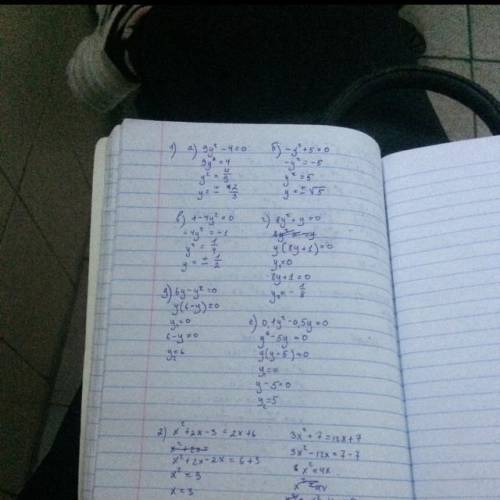 1) а) 9y² - 4 = 0
9y² = 4
y² = 4/9
y = ± 2/3
б) -y² + 5 = 0
-y² = -5
y² = 5
y = ± √5
в) 1 - 4y² = 0
-4y² = -1
y² = 1/4
y = ± 1/2
г) 8y² + y = 0
y(8y + 1) = 0
y₁ = 0
8y + 1 = 0
y₂ = - 1/8
д) 6y - y² = 0
y(6 - y) = 0
y₁ = 0
6 - y = 0
y₂ = 6
е) 0,1y² - 0,5y = 0
y² - 5y = 0
y(y - 5) = 0
y₁ = 0
y - 5 = 0
y₂ = 5
2) x² + 2x - 3 = 2x + 6
x² + 2x - 2x = 6 + 3
x² = 3
x = 3
3x² + 7 = 12x + 7
3x² - 12x = 7 - 7
x² = 4x